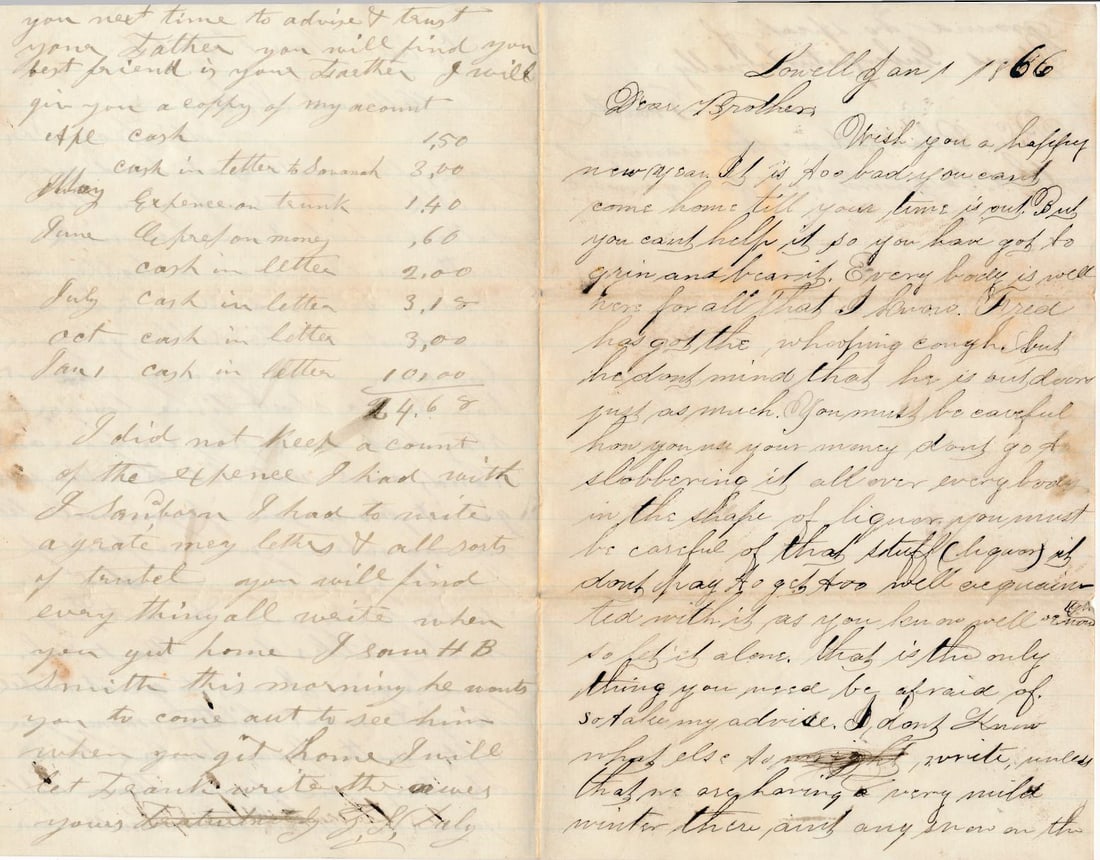 you next time to advise & trust
your Father you will find you
best friend is your Faether I will
giv you a coppy of my acount
Apl cash 1,50
cash in letter to Savanah 3,00
May Expence on trunk 1,40
June Expres on money ,60
cash in letter 2,00
July cash in letter 3,18
oct cash in letter 3,00
Jan 1 cash in letter 10,00
24.68
I did not keep a count
of the expence I had with
J Sanborn I had to write
a grate meny letters & all sorts
of you will find
every thing all write when
you git home I saw H B
Smith this morning he wants
you to come out to see him
when you git home I will
let Frank write the nuws
yours
Lowell Jan 1 1866
Dear Brother,
Wish you a happy
new year. It is too bad you cant
come home till your time is out But
you cant help it so you have got to
grin and bear it. Every body is well
here for all that I know. Fred
has got the whooping cough, but
he dont mind that he is out doors
just as much. You must be careful
how you use your money dont go to
slobbering it all over everybody
in the shape of liquor, you must
be careful of that stuff (liquor) it
dont pay to get too well acquain-
ted with it as you know well enough
so let it alone. That is the only
thing you need be afraid of.
so take my advise. I dont Know
what else to write, unless
that we are having a very mild
winter there aint any snow on the